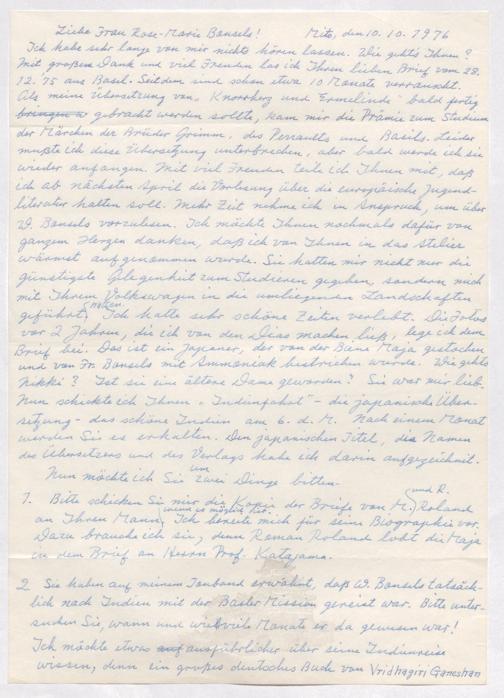 Liebe Frau Rose-Marie Bonsels! Mito, den 10. 10. 1976
Ich habe sehr lange von mir nichts hören lassen. Wie geht's Ihnen?
Mit großem Dank und viel Freuden las ich Ihren lieben Brief vom 28.
12. 75 aus Basel. Seitdem sind schon etwa 10 Monate verrauscht.
Als meine Übersetzung von „Knorrherz und Ermelinde" bald fertig
bringen u gebracht werden sollte, kam mir die Prämie zum Studium
der Märchen der Brüder Grimm, des Perraults und Basils. Leider
mußte ich diese Übersetzung unterbrechen, aber bald werde ich sie
wieder anfangen. Mit viel Freuden teile ich Ihnen mit, daß
ich ab nächsten April die Vorlesung über die europäische Jugend-
literatur halten soll. Mehr Zeit nehme ich in Anspruch, um über
W. Bonsels vorzulesen. Ich möchte Ihnen nochmals dafür von
ganzem Herzen danken, daß ich von Ihnen in das Atelier
wärmst aufgenommen wurde. Sie hatten mir nicht nur die
günstigste Gelegenheit zum Studieren gegeben, sondern mich
mit Ihrem Volkswagen in die umliegenden Landschaften
geführt. Ich hatte sehr schöne Zeiten verlebt. Die Fotos
vor 2 Jahren, die ich von den Dias machen ließ, lege ich dem
Brief bei. Das ist ein Japaner, der von der Biene Maja gestochen
und von Fr. Bonsels mit Ammoniak bestrichen wurde. Wie geht's
Nikki? Ist sie eine ältere Dame geworden? Sie war mir lieb.
Nun schickte ich Ihnen „Indienfahrt" – die japanische Über-
setzung – das schöne Indien am 6. d. M. Nach einem Monat
werden Sie es erhalten. Den japanischen Titel, den Namen
des Übersetzers und des Verlags habe ich darin aufgezeichnet.
Nun möchte ich Sie um zwei Dinge bitten.
1. Bitte schicken Sie mir die Kopie der Briefe von M. und R. Roland
an Ihren Mann, wenn es möglich ist. Ich bereite mich für seine Biographie vor.
Dazu brauche ich sie, denn Roman Roland lobt die Maja
in dem Brief an Herrn Prof. Katayama.
2 Sie haben auf meinem Tonband erwähnt, daß W. Bonsels tatsäch-
lich nach Indien mit der Basler Mission gereist war. Bitte unter-
suchen Sie, wann und wieviele Monate er da gewesen war!
Ich möchte etwas auf ausführlicher über seine Indienreise
wissen, denn ein großes deutsches Buch von Vridhagiri Ganeshan